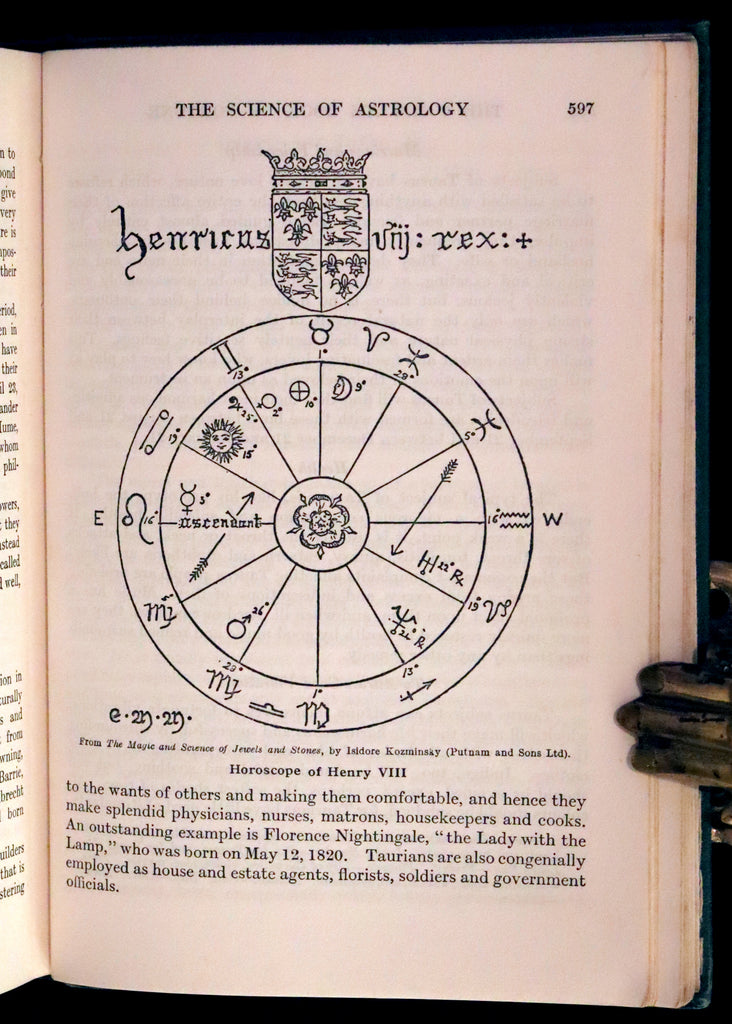 THE SCIENCE OF ASTROLOGY 597
henricus viij: rex: +
♉ 1°
♈
♓ 29°
♊ 13°
♃ 25° ♀ 2° ⊕ 16° ☽ 9°
♋ 19°
15°
5° ♓
☿ 3°
E ♌ 16° ascendant 16° ♒ W
♅ 22° ℞
19° ♑
♂ 26°
♆ ℞
29°
♎
1°
13°
♐
From The Magic and Science of Jewels and Stones, by Isidore Kozminsky (Putnam and Sons Ltd).
Horoscope of Henry VIII
to the wants of others and making them comfortable, and hence they
make splendid physicians, nurses, matrons, housekeepers and cooks.
An outstanding example is Florence Nightingale, “the Lady with the
Lamp,” who was born on May 12, 1820. Taurians are also congenially
employed as house and estate agents, florists, soldiers and government
officials.